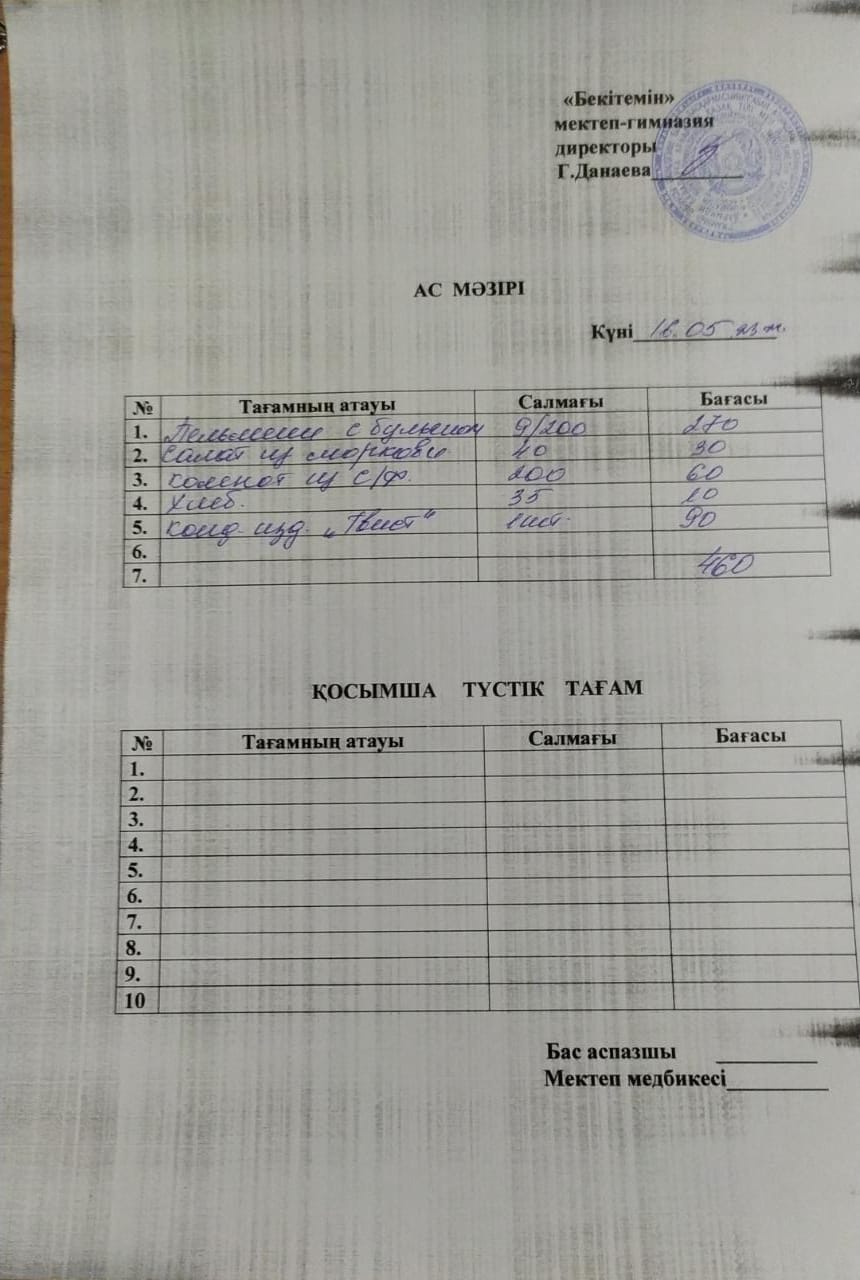 «Бекітемін»
мектеп-гимназия
директоры
Г.Данаева
АС МӘЗІРІ
Күні 16.05.23ж.
№ Тағамның атауы Салмағы Бағасы
1. Пельмени с бульоном 9/200 270
2. Салат из моркови 40 30
3. компот из с/ф. 200 60
4. Хлеб. 35 10
5. конд. изд. „Твист“ 1шт. 90
6.
7. 460
ҚОСЫМША ТҮСТІК ТАҒАМ
№ Тағамның атауы Салмағы Бағасы
1.
2.
3.
4.
5.
6.
7.
8.
9.
10
Бас аспазшы
Мектеп медбикесі